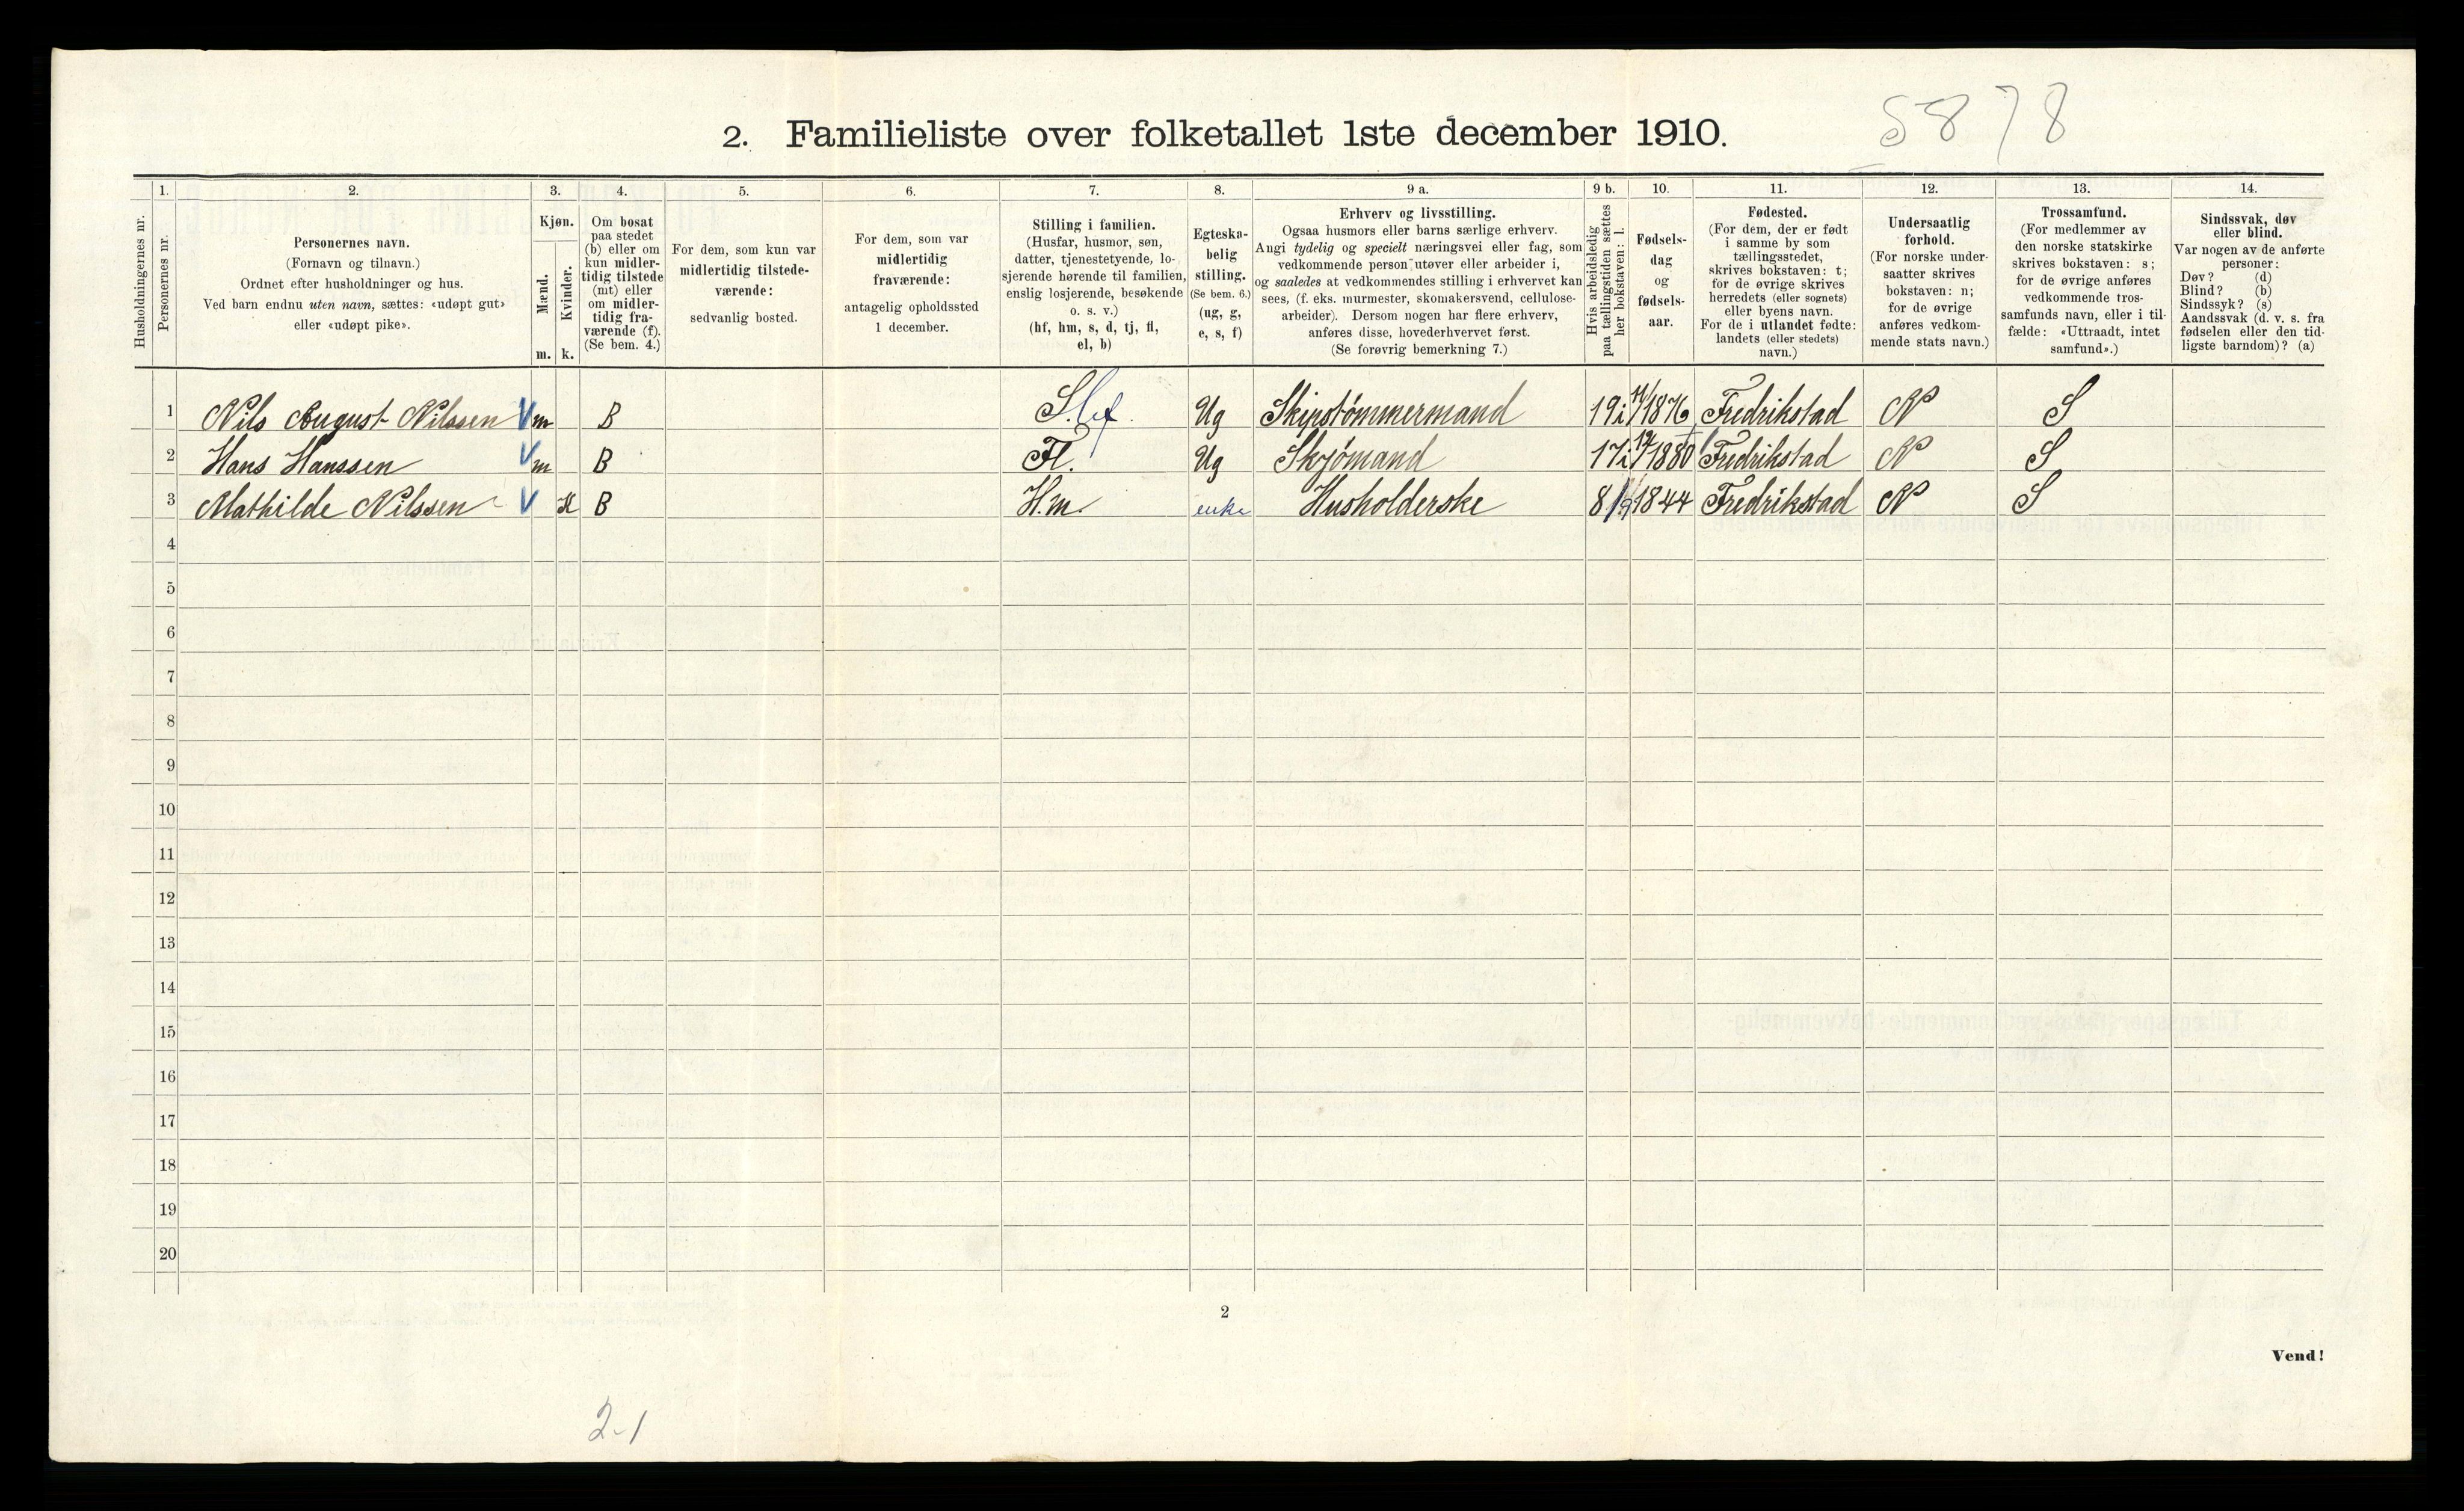 5878
2. Familieliste over folketallet 1ste december 1910.
Husholdningernes nr.
1. Personernes nr.
2. Personernes navn.
(Fornavn og tilnavn.)
Ordnet efter husholdninger og hus.
Ved barn endnu uten navn, sættes: «udøpt gut»
eller «udøpt pike».
3. Kjøn.
Mænd. Kvinder.
m. k.
4. Om bosat
paa stedet
(b) eller om
kun midler-
tidig tilstede
(mt) eller
om midler-
tidig fra-
værende (f).
(Se bem. 4.)
5. For dem, som kun var
midlertidig tilstede-
værende:
sedvanlig bosted.
6. For dem, som var
midlertidig
fraværende:
antagelig opholdssted
1 december.
7. Stilling i familien.
(Husfar, husmor, søn,
datter, tjenestetyende, lo-
sjerende hørende til familien,
enslig losjerende, besøkende
o. s. v.)
(hf, hm, s, d, tj, fl,
el, b)
8. Egteska-
belig
stilling.
(Se bem. 6.)
(ug, g,
e, s, f)
9 a. Erhverv og livsstilling.
Ogsaa husmors eller barns særlige erhverv.
Angi tydelig og specielt næringsvei eller fag, som
vedkommende person utøver eller arbeider i,
og saaledes at vedkommendes stilling i erhvervet kan
sees, (f. eks. murmester, skomakersvend, cellulose-
arbeider). Dersom nogen har flere erhverv,
anføres disse, hovederhvervet først.
(Se forøvrig bemerkning 7.)
9 b. Hvis arbeidsledig
paa tællingstiden sættes
her bokstaven: l.
10. Fødsels-
dag
og
fødsels-
aar.
11. Fødested.
(For dem, der er født
i samme by som
tællingsstedet,
skrives bokstaven: t;
for de øvrige skrives
herredets (eller sognets)
eller byens navn.
For de i utlandet fødte:
landets (eller stedets)
navn.)
12. Undersaatlig
forhold.
(For norske under-
saatter skrives
bokstaven: n;
for de øvrige
anføres vedkom-
mende stats navn.)
13. Trossamfund.
(For medlemmer av
den norske statskirke
skrives bokstaven: s;
for de øvrige anføres
vedkommende tros-
samfunds navn, eller i til-
fælde: «Uttraadt, intet
samfund».)
14. Sindssvak, døv
eller blind.
Var nogen av de anførte
personer:
Døv? (d)
Blind? (b)
Sindssyk? (s)
Aandssvak (d. v. s. fra
fødselen eller den tid-
ligste barndom)? (a)
1 Nils August Nilssen V m B S. Ug Skipstømmermand 19 i 11/1876 Fredrikstad N S
2 Hans Hanssen V m B Fl. Ug Skjømand 17 i 12/1880 Fredrikstad N S
3 Mathilde Nilssen V K B H.m. enke Husholderske 8/9 1844 Fredrikstad N S
4
5
6
7
8
9
10
11
12
13
14
15
16
17
18
19
20
2
Vend!
2-1